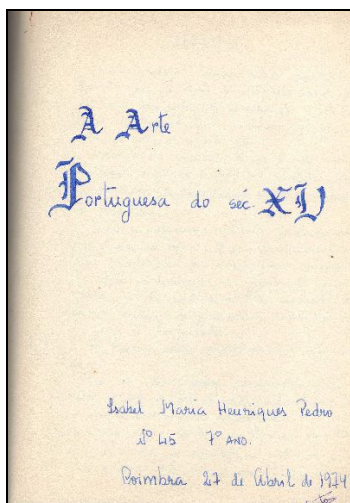 A Arte
Portuguesa do séc. XV
Isabel Maria Henriques Pedro
Nº 45 7º ANO.
Coimbra 27 de Abril de 1974